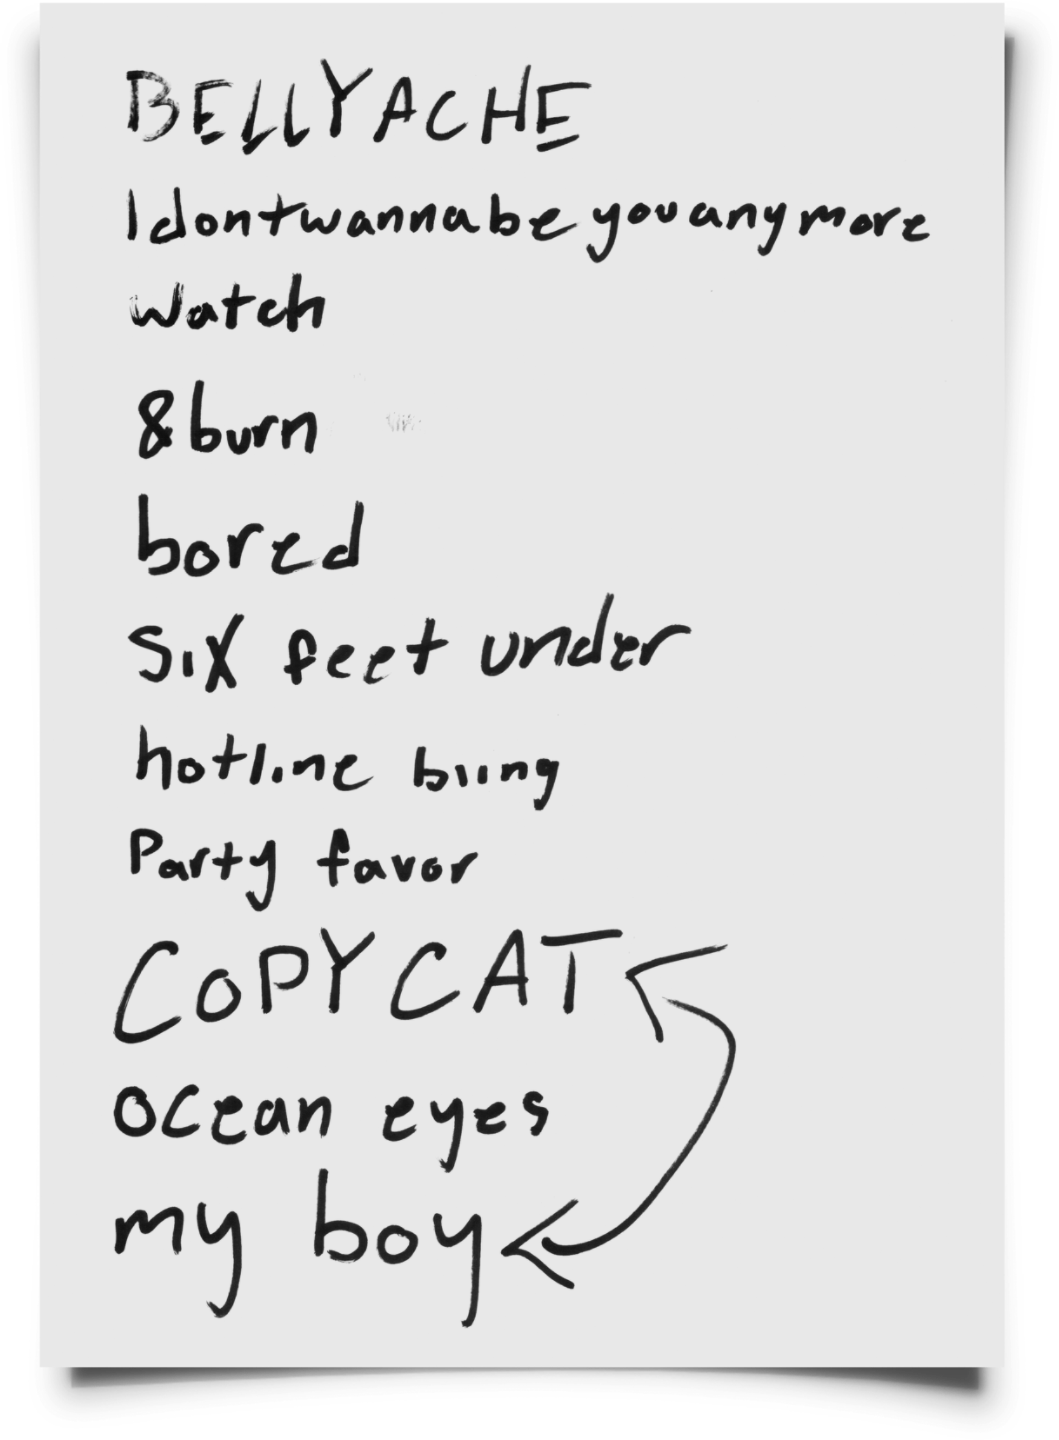 BELLYACHE
Idontwannabeyouanymore
Watch
&burn
bored
Six feet under
hotline biing
Party favor
COPYCAT
ocean eyes
my boy